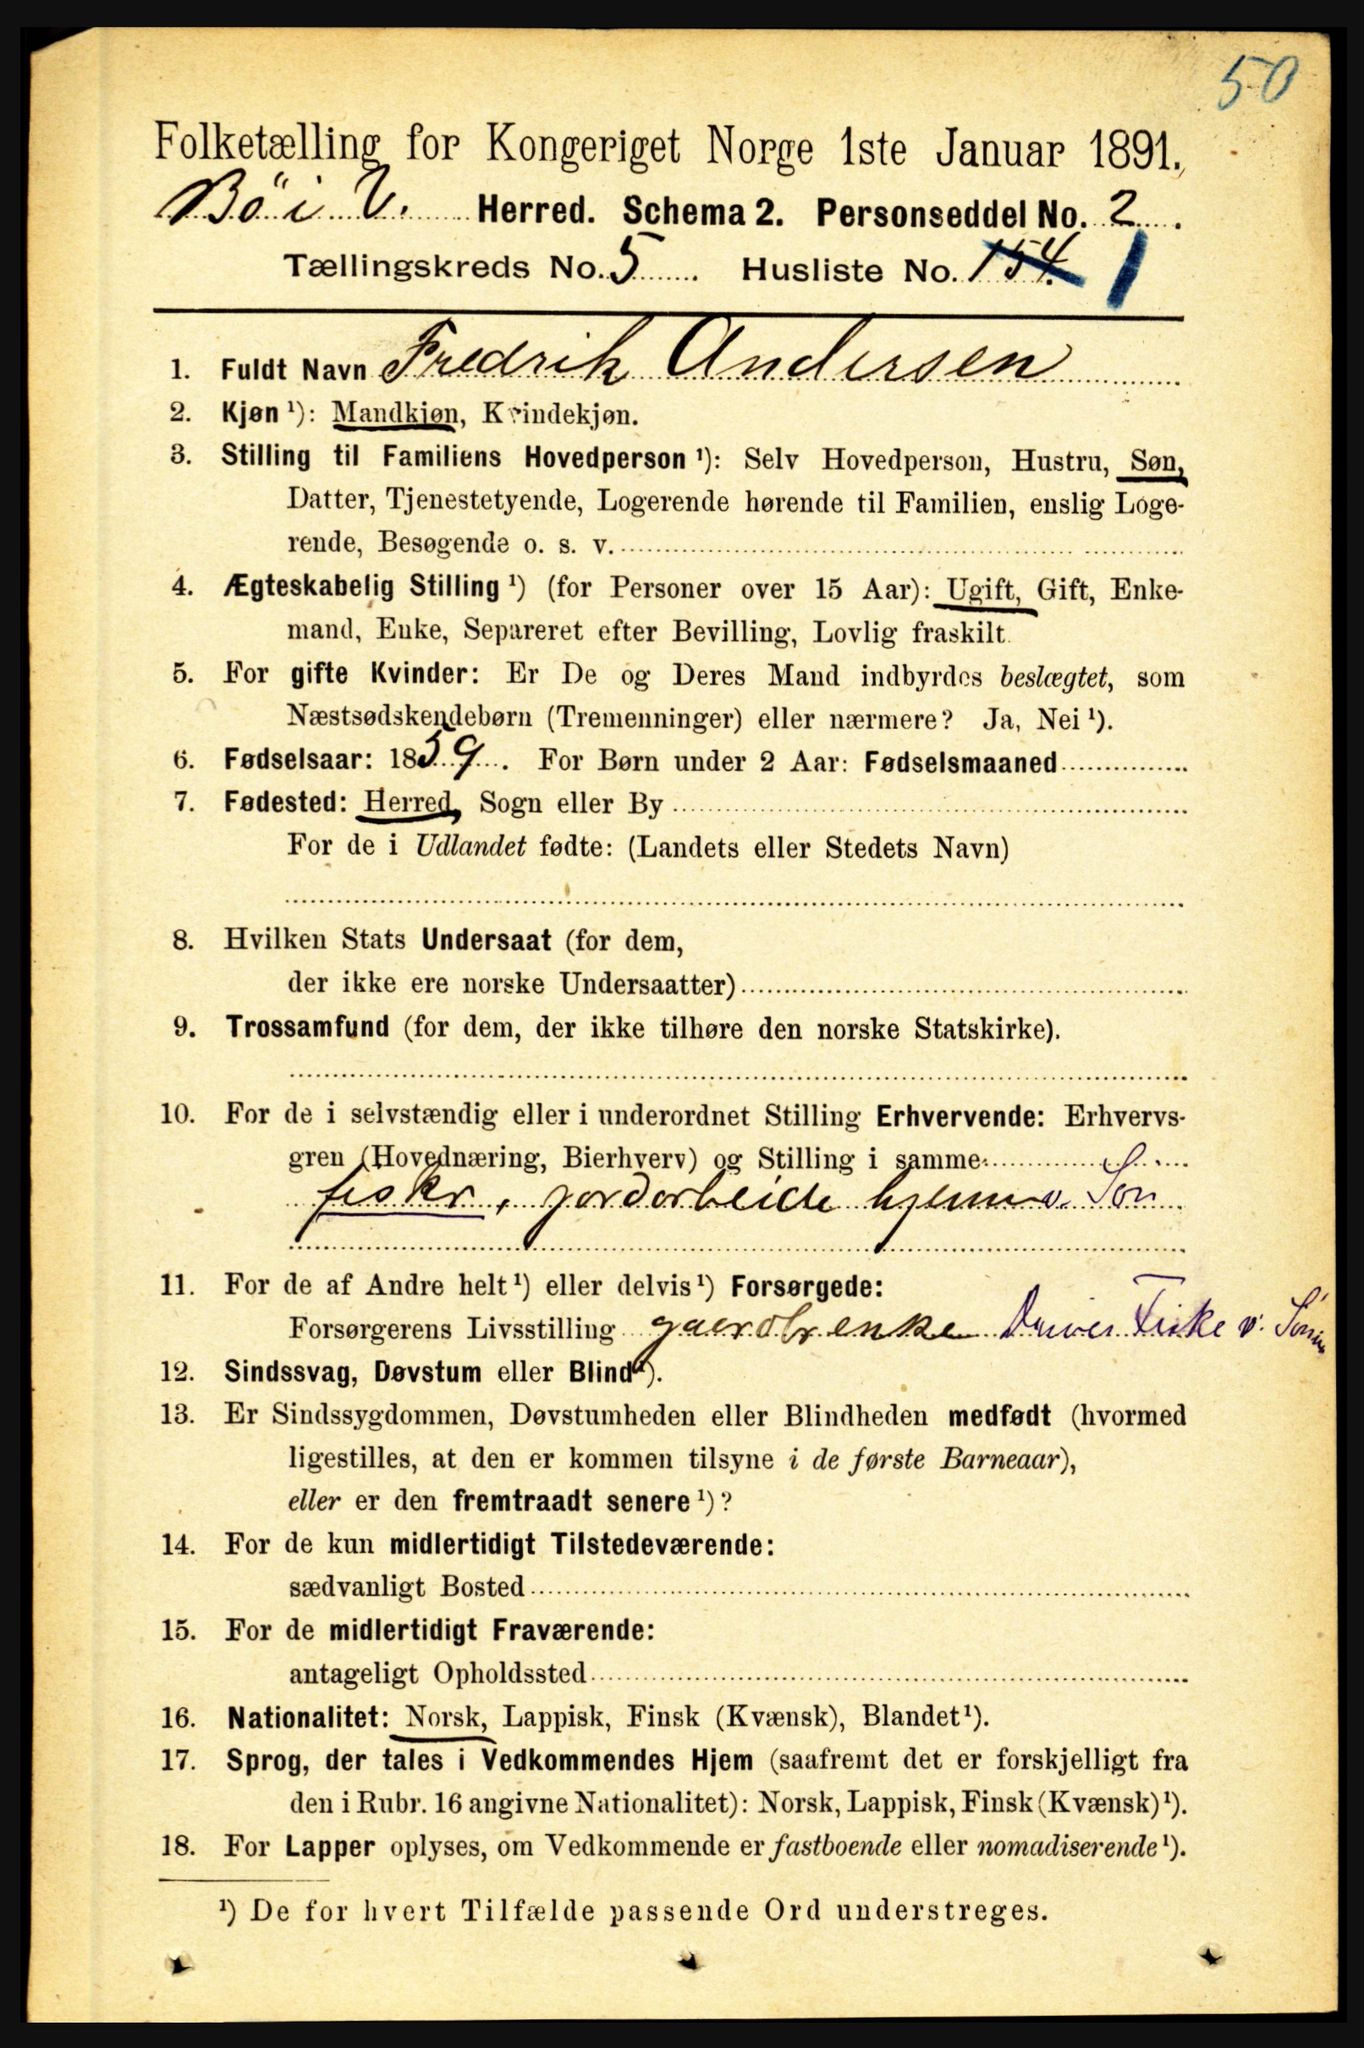 50
Folketælling for Kongeriget Norge 1ste Januar 1891.
Bö i V. Herred. Schema 2. Personseddel No. 2
Tællingskreds No. 5 Husliste No. 154. 1
1. Fuldt Navn Fredrik Andersen
2. Kjøn ¹): Mandkjøn, Kvindekjøn.
3. Stilling til Familiens Hovedperson ¹): Selv Hovedperson, Hustru, Søn,
Datter, Tjenestetyende, Logerende hørende til Familien, enslig Loge-
rende, Besøgende o. s. v.
4. Ægteskabelig Stilling ¹) (for Personer over 15 Aar): Ugift, Gift, Enke-
mand, Enke, Separeret efter Bevilling, Lovlig fraskilt.
5. For gifte Kvinder: Er De og Deres Mand indbyrdes beslægtet, som
Næstsødskendebørn (Tremenninger) eller nærmere? Ja, Nei ¹).
6. Fødselsaar: 1859. For Børn under 2 Aar: Fødselsmaaned
7. Fødested: Herred, Sogn eller By
For de i Udlandet fødte: (Landets eller Stedets Navn)
8. Hvilken Stats Undersaat (for dem,
der ikke ere norske Undersaatter)
9. Trossamfund (for dem, der ikke tilhøre den norske Statskirke).
10. For de i selvstændig eller i underordnet Stilling Erhvervende: Erhvervs-
gren (Hovednæring, Bierhverv) og Stilling i samme
fiskr, jordarbeide hjemme v. Sön
11. For de af Andre helt ¹) eller delvis ¹) Forsørgede:
Forsørgerens Livsstilling gaardbrenke Driver Fiske v.
12. Sindssvag, Døvstum eller Blind ¹).
13. Er Sindssygdommen, Døvstumheden eller Blindheden medfødt (hvormed
ligestilles, at den er kommen tilsyne i de første Barneaar),
eller er den fremtraadt senere ¹)?
14. For de kun midlertidigt Tilstedeværende:
sædvanligt Bosted
15. For de midlertidigt Fraværende:
antageligt Opholdssted
16. Nationalitet: Norsk, Lappisk, Finsk (Kvænsk), Blandet ¹).
17. Sprog, der tales i Vedkommendes Hjem (saafremt det er forskjelligt fra
den i Rubr. 16 angivne Nationalitet): Norsk, Lappisk, Finsk (Kvænsk) ¹).
18. For Lapper oplyses, om Vedkommende er fastboende eller nomadiserende ¹).
¹) De for hvert Tilfælde passende Ord understreges.